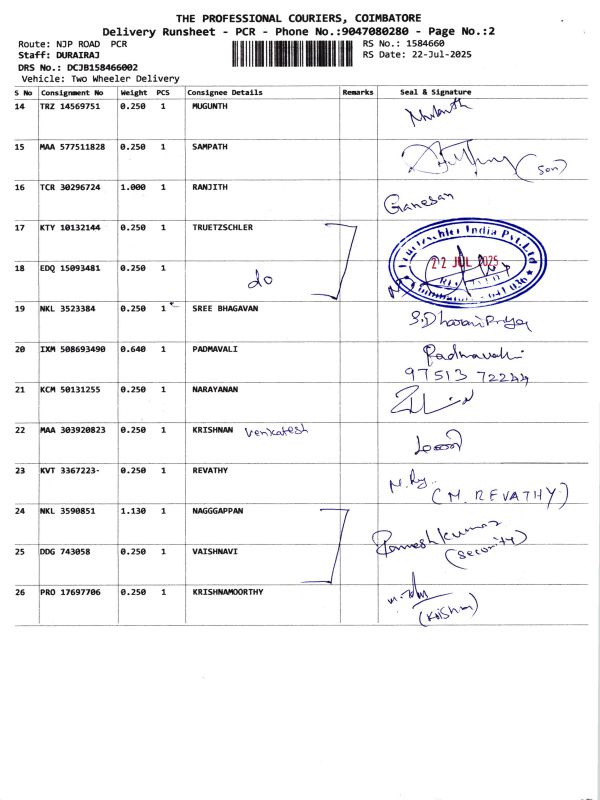 THE PROFESSIONAL COURIERS, COIMBATORE
Delivery Runsheet - PCR - Phone No.:9047080280 - Page No.:2
Route: NJP ROAD PCR
RS No.: 1584660
Staff: DURAIRAJ
RS Date: 22-Jul-2025
DRS No.: DCJB158466002
Vehicle: Two Wheeler Delivery
S No Consignment No Weight PCS Consignee Details Remarks Seal & Signature
14 TRZ 14569751 0.250 1 MUGUNTH
15 MAA 577511828 0.250 1 SAMPATH (Son)
16 TCR 30296724 1.000 1 RANJITH Ganesan
17 KTY 10132144 0.250 1 TRUETZSCHLER
Truetzschler India Pvt.Ltd
22 JUL 2025
18 EDQ 15093481 0.250 1 do
19 NKL 3523384 0.250 1 SREE BHAGAVAN S.Dharani Priya
20 IXM 508693490 0.640 1 PADMAVALI Padmavalli
97513 72244
21 KCM 50131255 0.250 1 NARAYANAN
22 MAA 303920823 0.250 1 KRISHNAN Venkatesh
23 KVT 3367223- 0.250 1 REVATHY
(M. REVATHY)
24 NKL 3590851 1.130 1 NAGGGAPPAN Rameshkumar
(Security)
25 DDG 743058 0.250 1 VAISHNAVI
26 PRO 17697706 0.250 1 KRISHNAMOORTHY